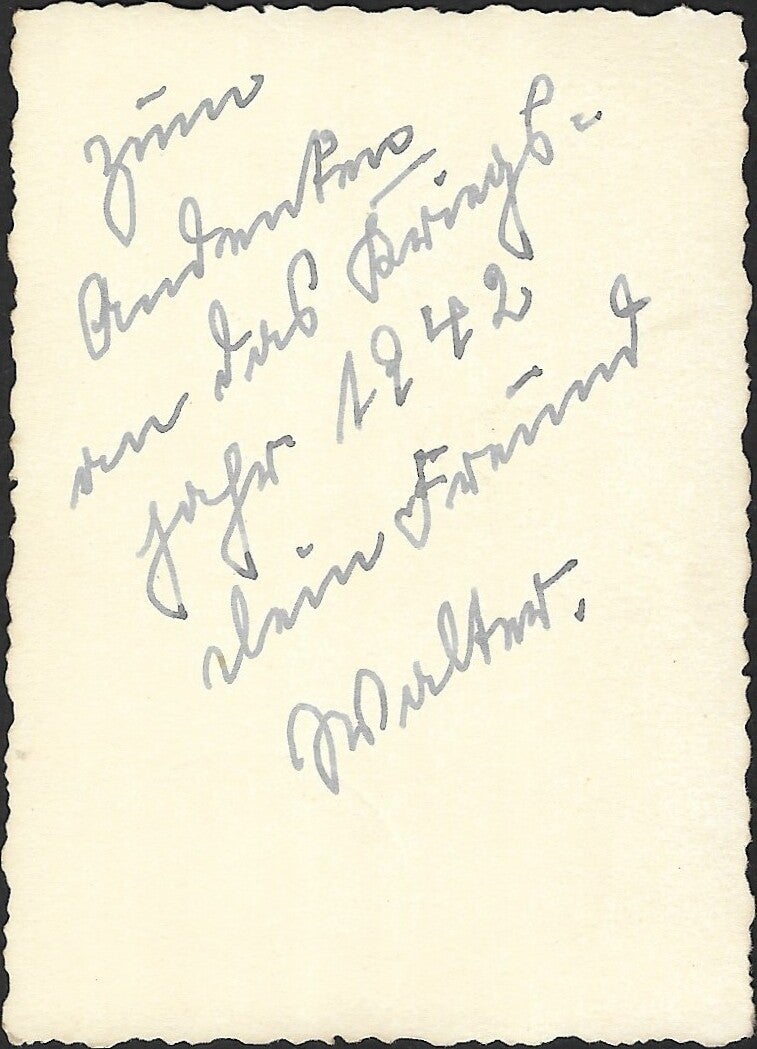 zum
Andenken
an das Kriegs-
jahr 1942
dein Freund
Walter.